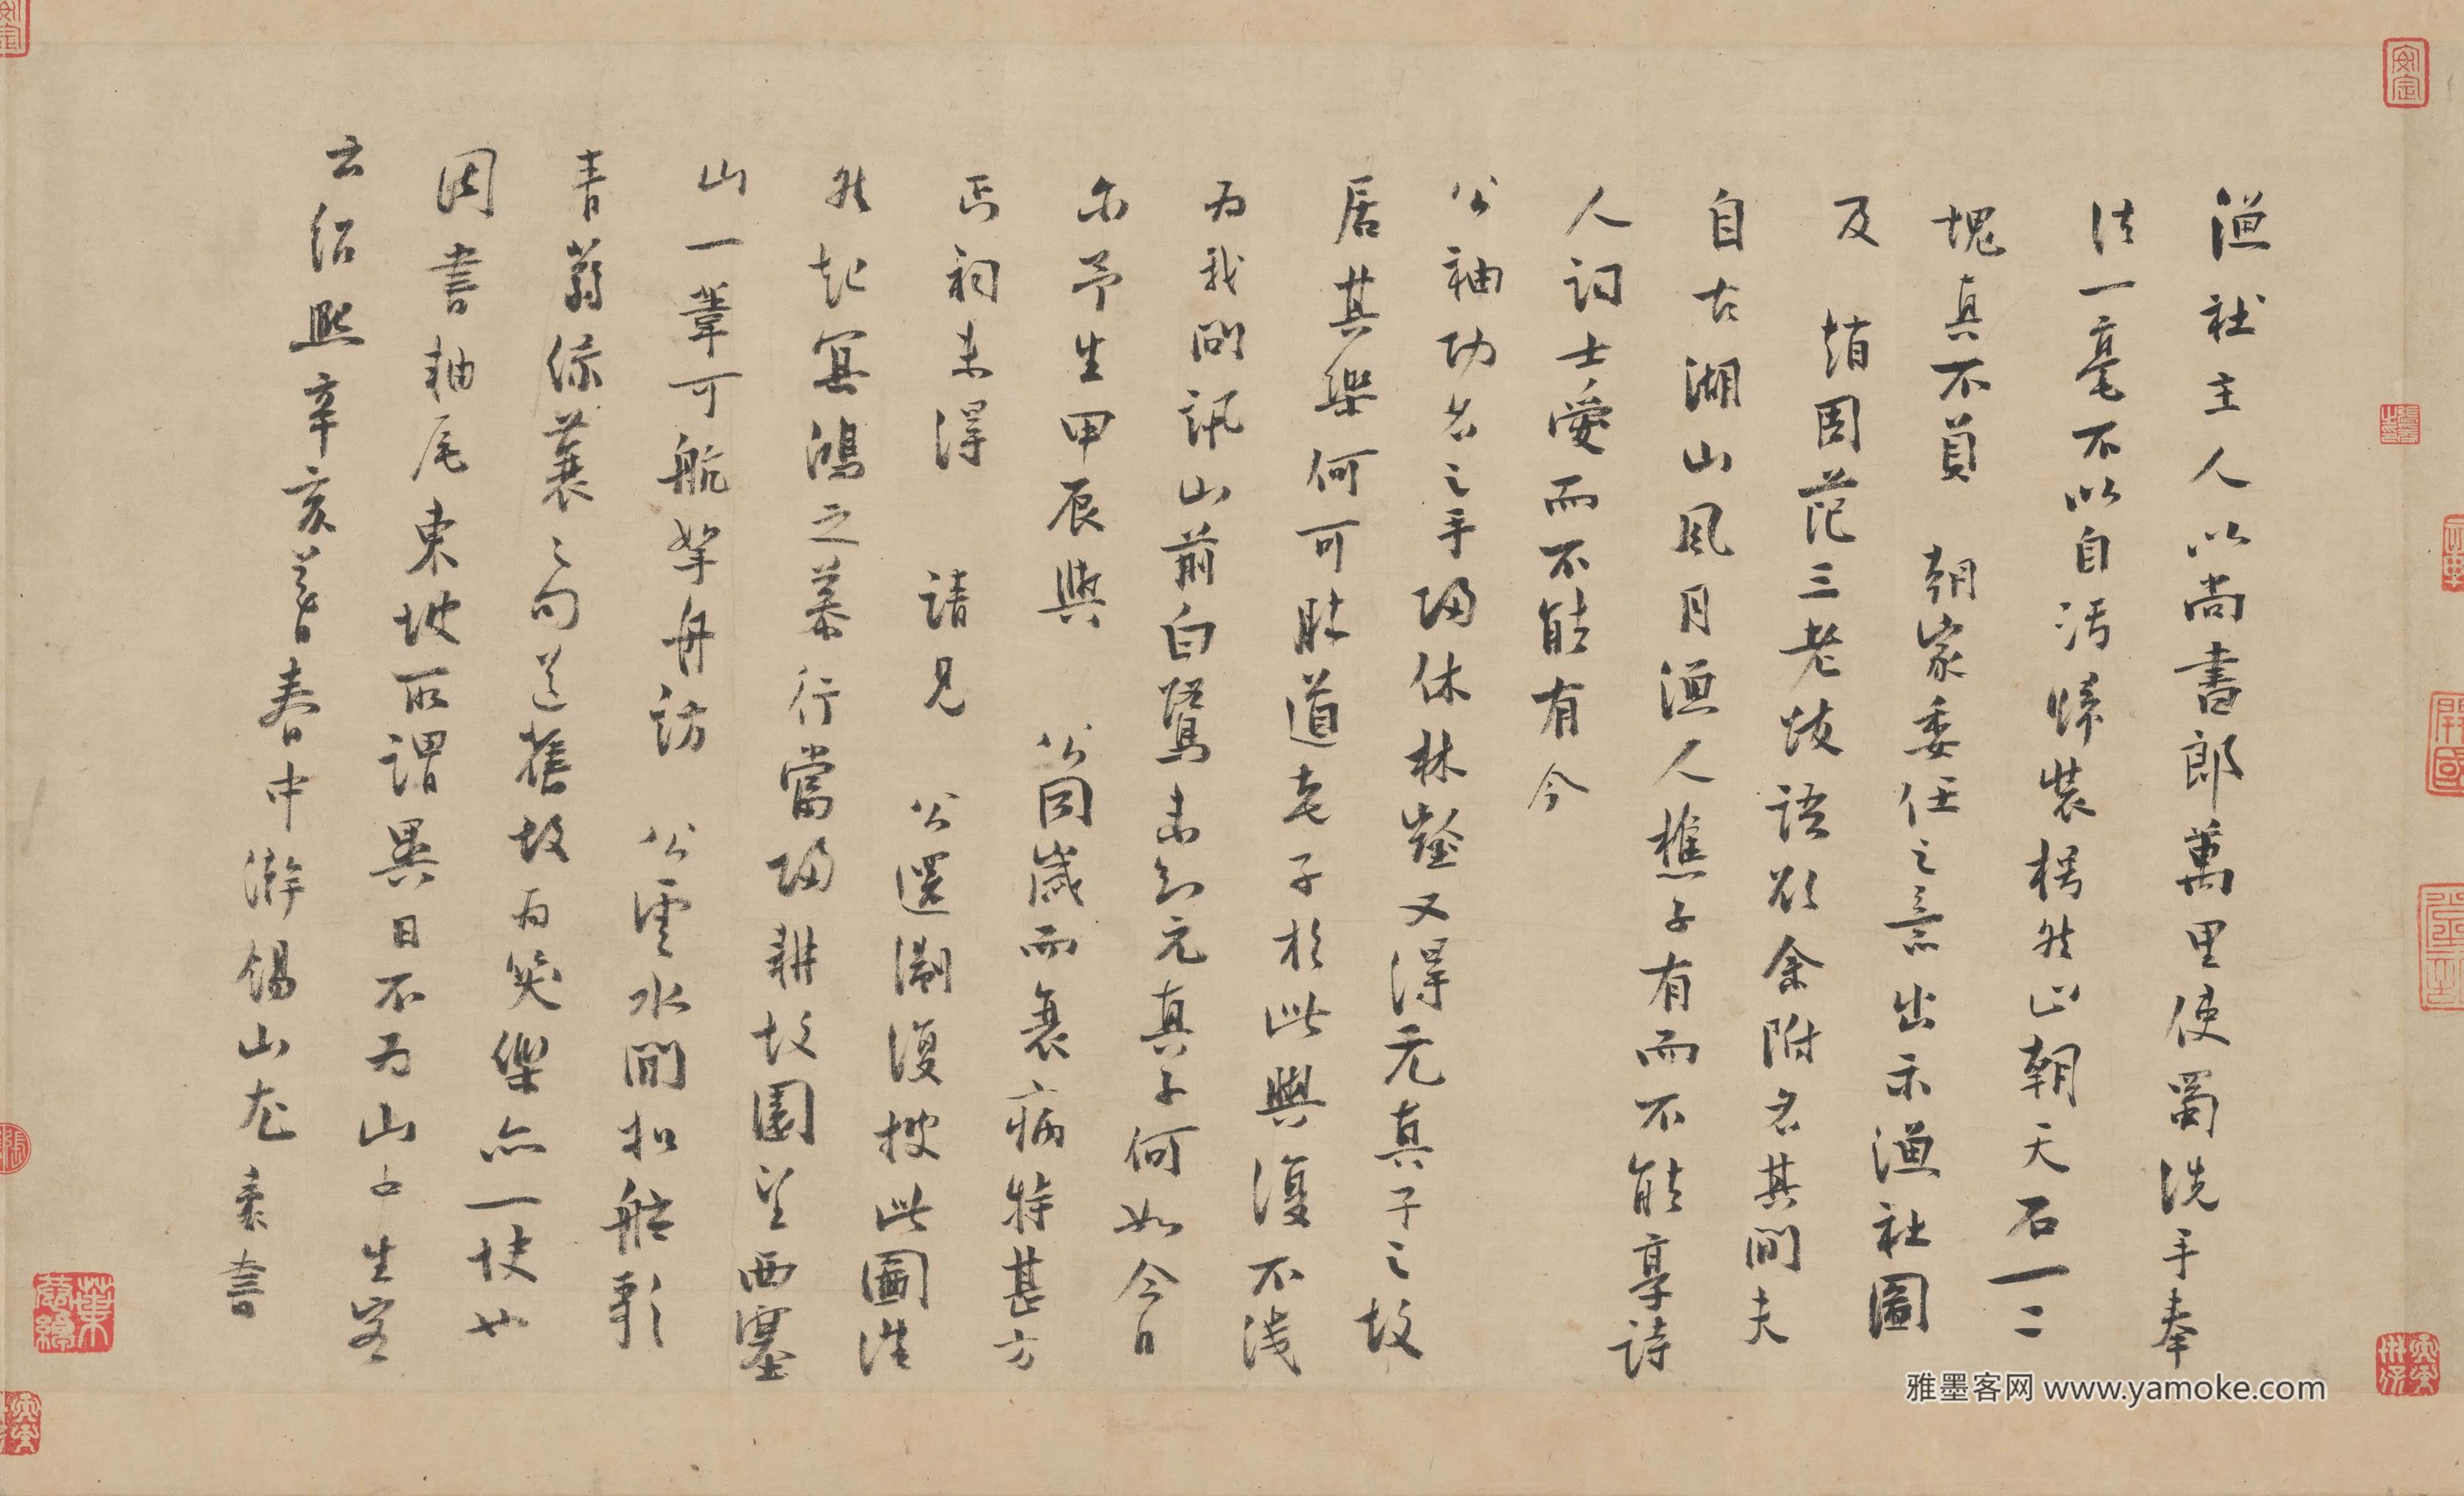 漁社主人以尚書郎萬里使蜀洗手奉
法一毫不以自污歸裝枵然止朝天石一二
塊真不負 朝家委任之意出示漁社圖
及 趙周范三老跋語欲余附名其間夫
自古湖山風月漁人樵子有而不能享詩
人詞士愛而不能有今
公袖功名之手歸休林壑又得元真子之故
居其樂何可勝道老子於此興復不淺
為我問訊山前白鷺未知元真子何如今日
尔予生甲辰與 公同歲而衰病特甚方
丐祠未得 請見 公還溯復挍此圖浩
然起冥鴻之慕行當歸耕故園望西塞
山一葦可航拏舟訪 公雲水間扣舷歌
青蒻綠蓑之句道舊故為笑樂亦一快也
因書軸尾東坡所謂異日不為山中生客
云紹熙辛亥暮春中澣錫山尤袤書
雅墨客网 www.yamoke.com